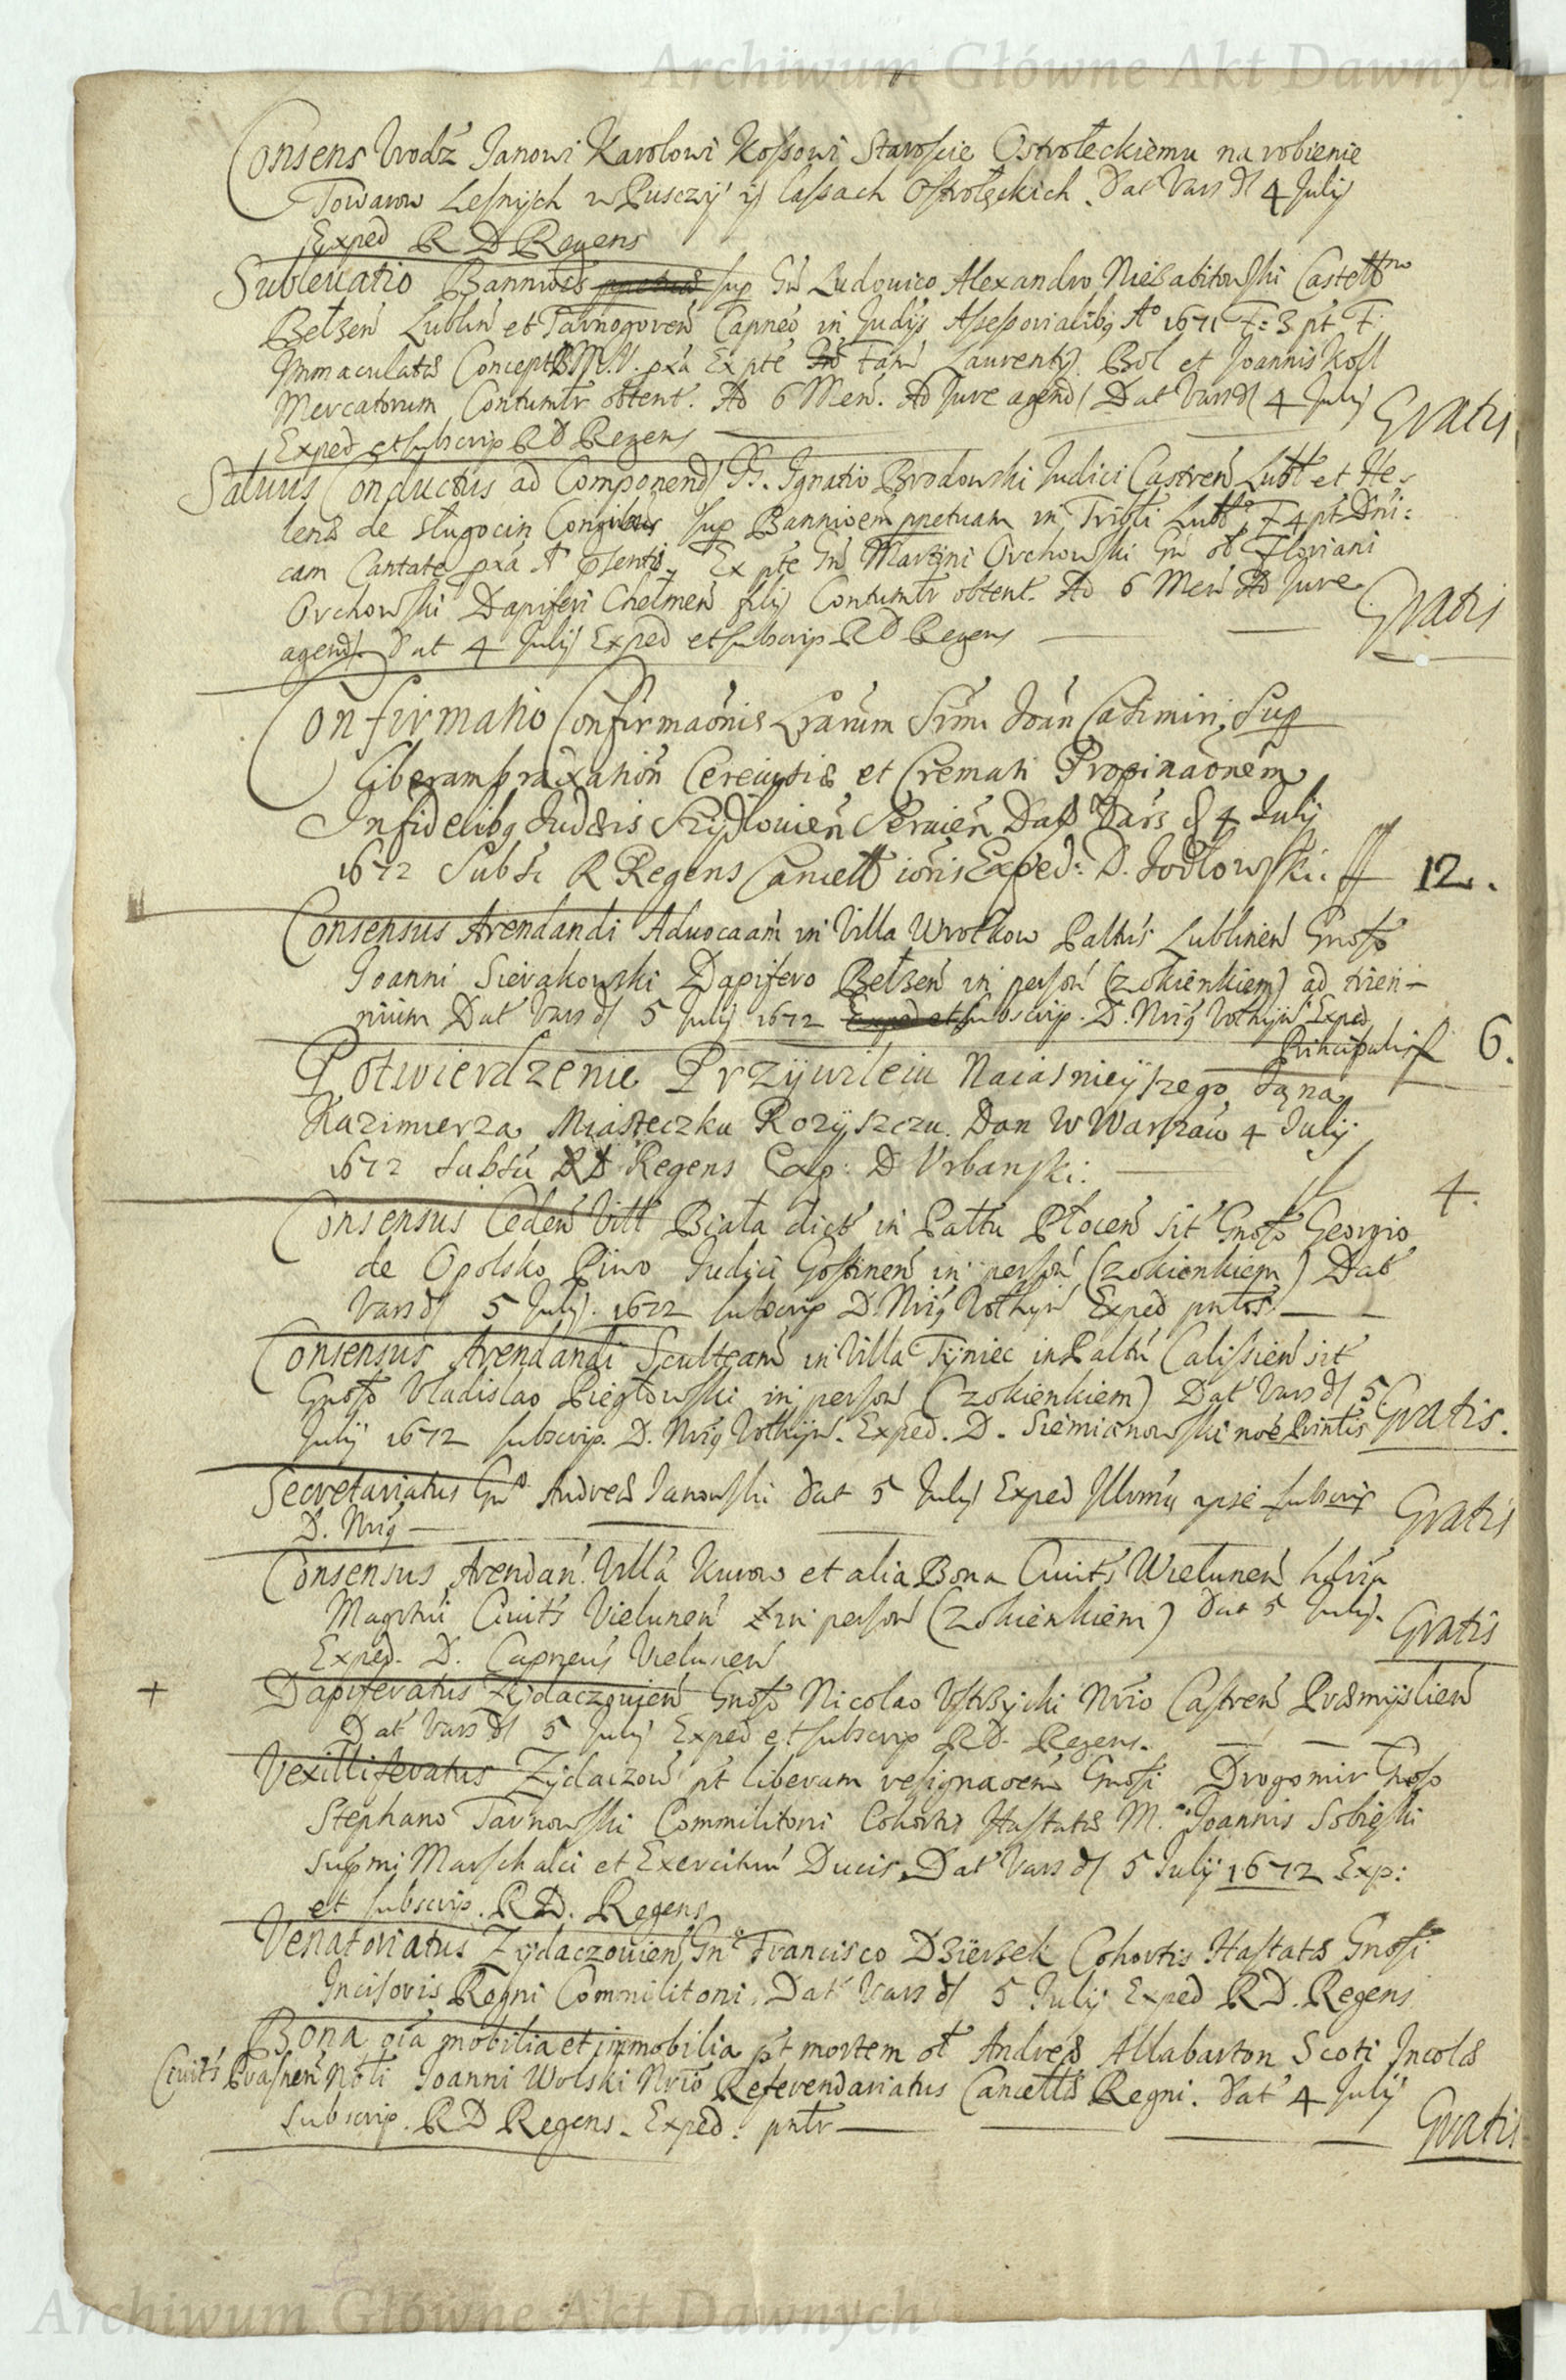 Archiwum Główne Akt Dawnych
Consens Urodź Janowi Karolowi Kossowi Staroscie Ostrołeckiemu na robienie
Towarow Lesnych w Pusczÿ ÿ lassach Ostrołęckich. Dat Vars dſ 4 Julÿ
Exped R D Regens
Subleuatio Bannitôis sup Gń Ludouico Alexandro Niezabitowski Castełł
Bełzeń Lublin et Tarnogoreń Capneo in Judÿs Assessorialibq Aº 1671 F: 3 pt F
Immaculatæ Concept B.M.V. pxa Ex pte Fam Laurentÿ Bol et Joannis Koll
Mercatorum Contumtr obtent. Ad 6 Meń. Ad Jure agend Dat Vars dſ 4 Julÿ Gratis
Exped et subscrip R D Regens
Saluus Conductus ad Componend Gń. Ignatio Brodowski Judici Castreń Lubł et He-
lenæ de Sługocin Coniugibus sup Bannioem ppetuam in Tribłi Lubł F 4 pt Dni:
cam Cantate pxa Aº psenti, Ex pte Gń Martini Orchowski Gń ol Floriani
Orchowski Dapiferi Chełmeń filÿ Contumtr obtent. Ad 6 Meń Ad Jure Gratis
agend. Dat 4 Julÿ Exped et subscrip R D Regens
Confirmatio Confirmaõnis Lrarum Srmi Joań Casimiri, Sup
liberam braxation Cereuisiæ et Cremati Propinaõnem
Infidelibq Judæis Szÿdlouień Seruień Dat Vars d 4 Julÿ
1672 Subs R Regens Cancell ioris Exped: D. Jodłowski. 12.
Consensus Arendandi Aduocaam in Villa Wrotkow Pałtus Lublineń Gnoso
Joanni Sierakowski Dapifero Bełzeń in person (z okienkiem) ad trien-
nium Dat Vars dſ 5 Julÿ 1672 Exped et subscrip. D. Nrig Vołhÿń Exped
Principalis 6.
Potwierdzenie Przÿwileiu Naiasnieÿszego Jana
Kazimierza Miasteczku Rozÿszczu. Dan w Warszaw 4 Julÿ
1672 Subscri R D Regens Exp: D Urbanski: 4.
Consensus Cedeń Vill Biała dict in Pałtu Płoceń sit Gnoso Georgio
de Opolsko Piwo Judici Gostineń in person (z okienkiem) Dat
Vars dſ 5 Julÿ. 1672 subscrip D. Nrig Vołhÿń Exped
Consensus Arendandi Sculteam in Villa Tÿniec in Pałtu Calissień sit
Gnoso Vladislao Piegłowski in person (z okienkiem) Dat Vars dſ 5 Gratis.
Julÿ 1672 subscrip. D. Nrig Vołhÿń. Exped. D. Siemianowski noe
Secretariatus Gnº Andreæ Janowski Dat 5 Julÿ Exped Illrmus ipse subscrip Gratis
D. Nrig
Consensus Arendań. Villa Kurow et alia Bona Ciuits Wieluneń
Magrtui Ciuits Vieluneń in person (z okienkiem) Dat 5 Julÿ. Gratis
Exped. D. Capneus Vieluneń
+ Dapiferatus Zÿdaczouień Gnoso Nicolao Ustrzycki Nrio Castreń Præmÿslień
Dat Vars dſ 5 Julÿ Exped et subscrip R D. Regens.
Vexilliferatus Zÿdaczow pt liberam resignaoem Gnosi Drogomir Gnoso
Stephano Tarnowski Commilitoni Cohortis Hastatæ M. Joannis Sobieski
Supmi Marschalci et Exercituu Ducis. Dat Vars dſ 5 Julÿ 1672 Exp:
et subscrip. R D. Regens
Venatoriatus Zÿdaczouień Gnº Francisco Dzierzek Cohortis Hastatæ Gnosi
Incisoris Regni Commilitoni. Dat Vars dſ 5 Julÿ Exped R D. Regens
Bona oia mobilia et immobilia pt mortem ol Andreæ Allabarton Scoti Incolæ
Ciuits Prasneń Nołi Joanni Wolski Nrio Referendariatus Cancellæ Regni. Dat 4 Julÿ
Subscrip. R D Regens. Exped: Gratis
Archiwum Główne Akt Dawnych